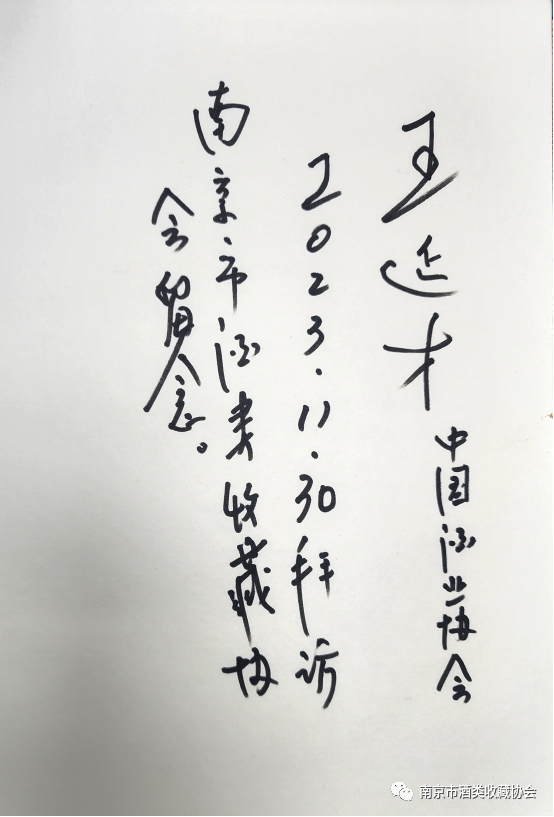 王延才
中国酒业协会
2023.11.30拜访
南京市酒类收藏协
会留念。
南京市酒类收藏协会